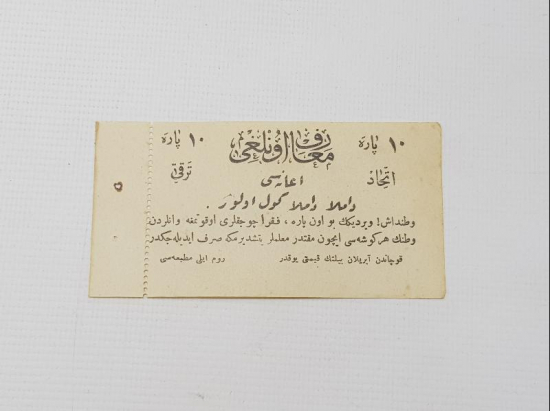 ١٠ پاره معارف اونلغی ١٠ پاره
اتحاد اعانه‌سی ترقی
داملا داملا كول اولور.
وطنداش! ویردیكك بو اون پاره، فقرا چوجقلری اوقوتمغه وانلردن
وطنك هر كوشه‌سی ایچون مقتدر معلملر یتشدیرمكه صرف ایدیله‌جكدر
قوچاندن آیریلان بیلتك قیمتی یوقدر روم ایلی مطبعه‌سی